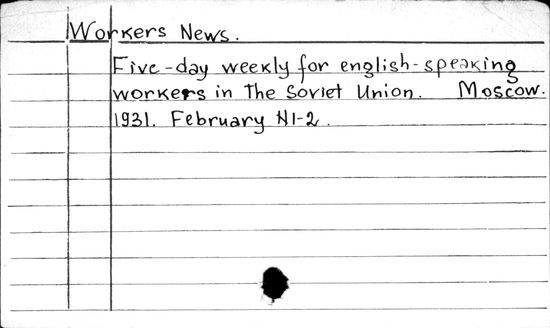 Workers News.
Five-day weekly for english-speaking
workers in The Soviet Union. Moscow.
1931. February N1-2.